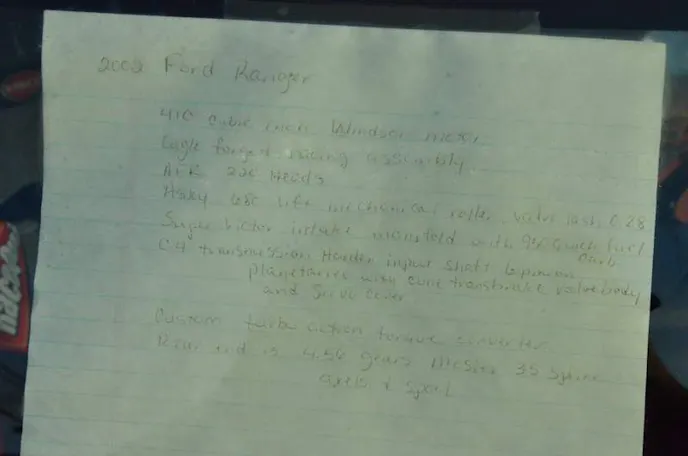 2002 Ford Ranger
410 cubic inch Windsor
Eagle forged racing assembly
AFR 225 Heads
lift mechanical roller valve lash .028
Super Victor intake manifold with Quick Fuel
Carb
C4 transmission Harden input shaft 6 pinion
planetaries with transbrake valve body
and Servo Cover
Custom turbo action torque converter
Rear end is 4.56 gears Moser 35 Spline
axels & Spool